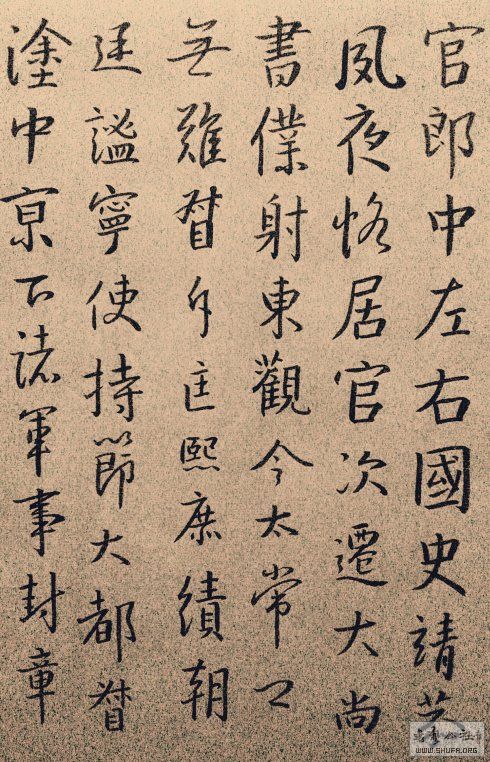 官郎中左右國史靖恭
夙夜恪居官次遷大尚
書僕射東觀令太常
無難督斥匡熙庶績朝
廷謐寧使持節大都督
塗中京下諸軍事封章
WWW.SHUFA.ORG